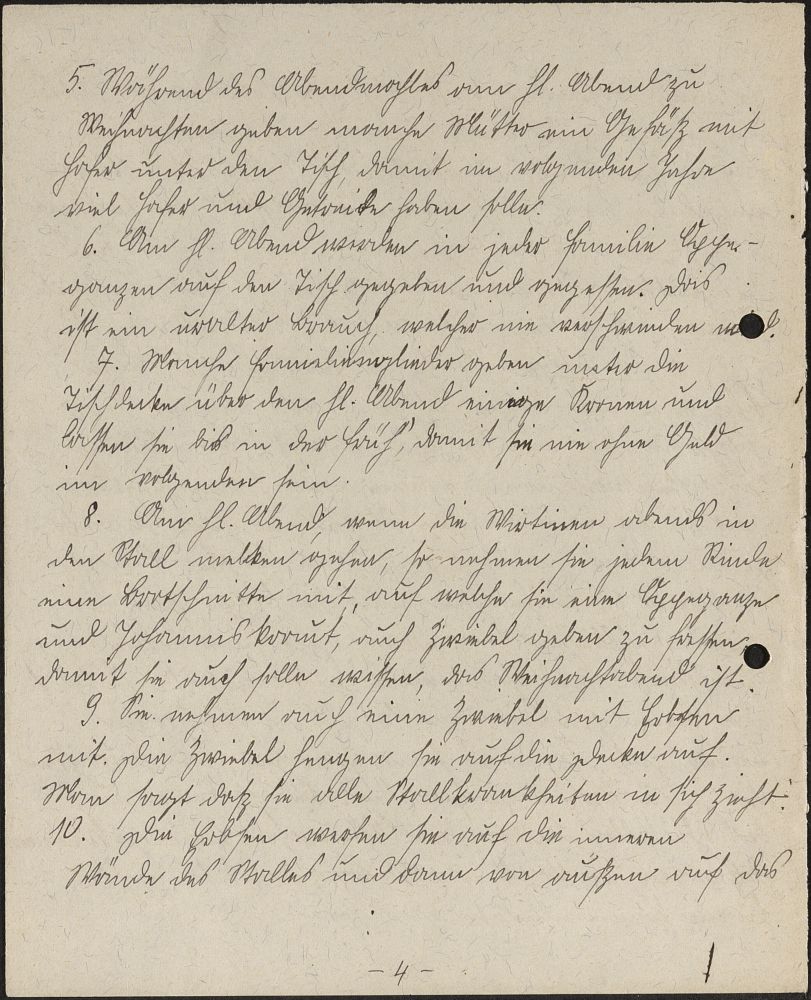 5. Während des Abendmahles am hl. Abend zu
Weihnachten geben manche Mütter ein Gefäß mit
Hafer unter den Tisch, damit im volgenden Jahre
viel Hafer und Getreide haben solle.
6. Am hl. Abend werden in jeder Familie
auf den Tisch gegeben und gegessen. Dais
ist ein uralter Brauch, welcher nie verschwinden wird.
7. Manche Familienmglieder geben unter die
Tischdecke über den hl. Abend einige Kronen und
lassen sie bis in der früh, damit sie nie ohne Geld
im volgenden sein.
8. Am hl. Abend, wenn die Wirtinen abends in
den Stall melken gehen, so nehmen sie jedem Rinde
eine Brotschnitte mit, auf welche sie eine
und Johanniskraut, auch Zwiebel geben zu fressen,
damit sie auch solle wissen, das Weihnachtabend ist.
9. Sie nehmen auch eine Zwiebel mit Erbsen
mit. Die Zwiebel hengen sie auf die Decke auf.
Man sagt daß sie alle Stallkrankheiten in sich zieht.
10. Die Erbsen werfen sie auf die inneren
Wände des Stalles und dann von außen auf das
- 4 -